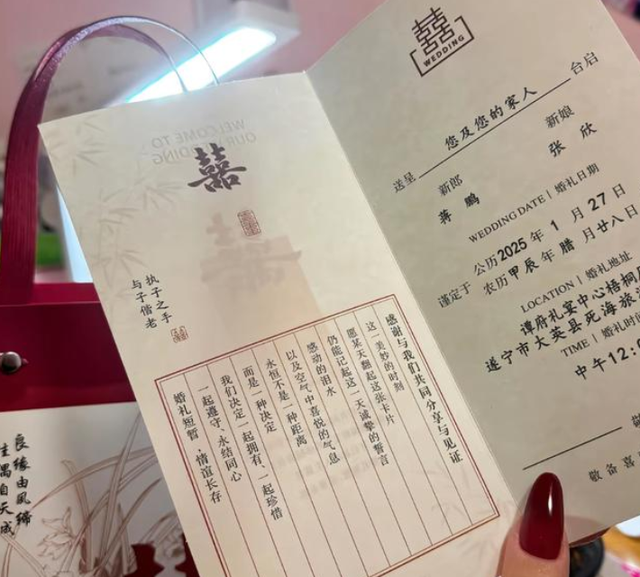 囍
WEDDING
送呈 您及您的家人 台启
新郎 新娘
蒋鹏 张欣
WEDDING DATE | 婚礼日期
公历2025年1月27日
谨定于 农历甲辰年腊月廿八日
LOCATION | 婚礼地址
谭府礼宴中心梧桐
遂宁市大英县死海旅
TIME | 婚礼时
中午12:0
敬备喜
WELCOME TO
OUR WEDDING
囍
执子之手
与子偕老
感谢与我们共同分享与见证
这一美妙的时刻
愿某天翻起这张卡片
仍能记起这一天诚挚的誓言
感动的泪水
以及空气中喜悦的气息
永恒不是一种距离
而是一种决定
我们决定一起拥有、一起珍惜
一起遵守、永结同心
婚礼短暂 情谊长存
良缘由夙缔
佳偶自天成